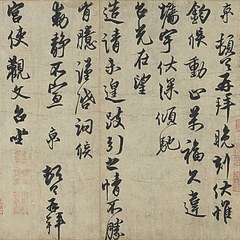 京頓首再拜晚刻伏惟
鈞候動止萬福久違
牆宇伏深傾馳
台光在望
造請未遑跂引之情不勝
胷臆謹啟詞候
動靜不宣 京 頓首再拜
宮使觀文台坐